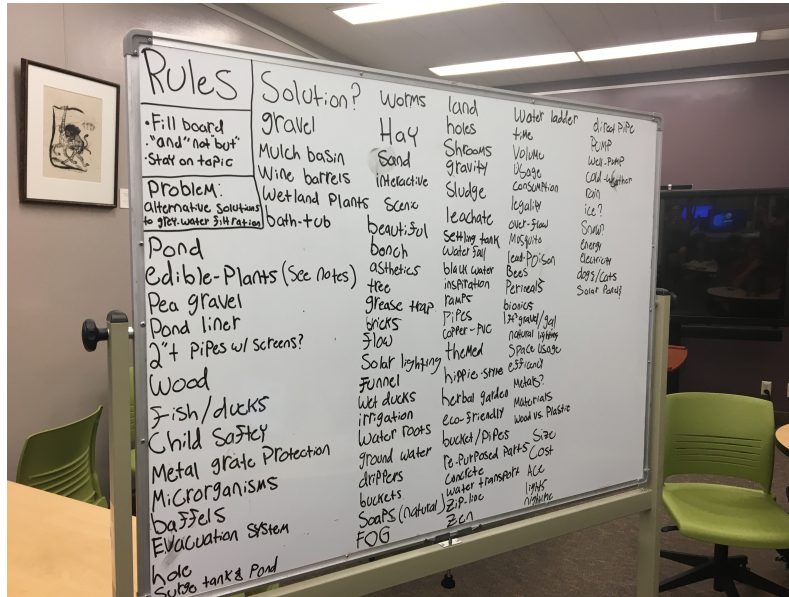 Rules
• Fill board
• "and" not "but"
• Stay on topic
Problem:
alternative solutions
to grey-water filtration
Solution?
gravel
Mulch basin
Wine barrels
Wetland Plants
bath-tub
Pond
edible-Plants (see notes)
Pea gravel
Pond liner
2"+ Pipes w/ screens?
Wood
Fish/ducks
Child Saftey
Metal grate Protection
Microrganisms
baffels
Evacuation System
hole
Surge tank & Pond
worms
Hay
Sand
interactive
Scenic
beautiful
bench
asthetics
tree
grease trap
bricks
flow
Solar lighting
Funnel
Wet ducks
irrigation
Water roots
ground water
drippers
buckets
Soaps (natural)
FOG
land
holes
Shrooms
gravity
Sludge
leachate
Settling tank
Water fall
black water
inspiration
ramps
Pipes
copper-PVC
themed
hippie-style
herbal garden
eco-friendly
bucket/pipes
re-Purposed Parts
Concrete
Water transport
Zip-line
Zen
Water ladder
time
Volume
Usage
Consumption
legality
over-flow
Mosquito
lead-Poison
Bees
Perineals
bionics
natural lighting
Space Usage
efficency
Metals?
Materials
Wood vs. Plastic
Size
Cost
Ace
lights
nightime
direct pipe
Pump
Well-Pump
Cold-weather
rain
ice?
Snow?
energy
electricity
dogs/cats
Solar Panel?